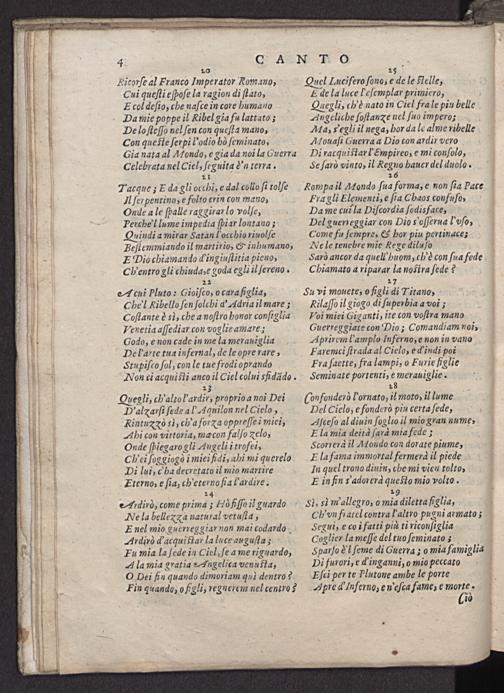 4 CANTO
20
Ricorse al Franco Imperator Romano,
Cui questi espose la ragion di stato,
E col desio, che nasce in core humano
Da mie poppe il Ribel gia fu lattato;
De lo stesso nel sen con questa mano,
Con queste serpi l'odio hò seminato,
Gia nata al Mondo, e gia da noi la Guerra
Celebrata nel Ciel, seguita è 'n terra.
21
Tacque; E da gli occhi, e dal collo si tolse
Il serpentino, e folto crin con mano,
Onde a le spalle raggirar lo volse,
Perche 'l lume impedia spiar lontano;
Quindi a mirar Satan l'occhio riuolse
Bestemmiando il martirio, & inhumano,
E Dio chiamando d'ingiustitia pieno,
Ch'entro gli chiuda, e goda egli il sereno.
22
A cui Pluto: Gioisco, o cara figlia,
Che'l Ribello sen solchi d'Adria il mare;
Costante è sì, che a nostro honor consiglia
Venetia assediar con voglie amare;
Godo, e non cade in me la merauiglia
De l'arte tua infernal, de le opre rare,
Stupisco sol, con le tue frodi oprando
Non ci acquisti anco il Ciel colui sfidãdo.
23
Quegli, ch'alto l'ardir, proprio a noi Dei
D'alzarsi sede a l'Aquilon nel Cielo,
Rintuzzò sì, ch'a forza oppresse i miei,
Ahi con vittoria, ma con falso zelo,
Onde spiegaro gli Angeli i trofei,
Ch'ei soggiogò i miei fidi, ahi mi querelo
Di lui, c'ha decretato il mio martire
Eterno, e sia, ch'eterno sia l'ardire.
24
Ardirò, come prima; Hò fisso il guardo
Ne la bellezza natural vetusta,
E nel mio guerreggiar non mai codardo
Ardirò d'acquistar la luce augusta;
Fu mia la sede in Ciel, se a me riguardo,
A la mia gratia Angelica venusta,
O Dei fin quando dimoriam quì dentro?
Fin quando, o figli, regnerem nel centro?
25
Quel Lucifero sono, e de le stelle,
E de la luce l'esemplar primiero,
Quegli, ch'è nato in Ciel fra le piu belle
Angeliche sostanze nel suo impero;
Ma, s'egli il nega, hor da le alme ribelle
Mouasi Guerra a Dio con ardir vero
Di racquistar l'Empireo, e mi consolo,
Se sarò vinto, il Regno hauer del duolo.
26
Rompa il Mondo sua forma, e non sia Pace
Fra gli Elementi, e sia Chaos confuso,
Da me cui la Discordia sodisface,
Del guerreggiar con Dio s'osserua l'vso,
Come fu sempre, & hor piu pertinace;
Ne le tenebre mie Rege diluso
Sarò ancor da quell'huom, ch'è con sua fede
Chiamato a riparar la nostra sede?
27
Su vi mouete, o figli di Titano,
Rilasso il giogo di superbia a voi;
Voi miei Giganti, ite con vostra mano
Guerreggiate con Dio; Comandiam noi,
Aprirem l'amplo Inferno, e non in vano
Faremci strada al Cielo, e d'indi poi
Fra saette, fra lampi, o Furie figlie
Seminate portenti, e merauiglie.
28
Confonderò l'ornato, il moto, il lume
Del Cielo, e fonderò piu certa sede,
Asceso al diuin soglio il mio gran nume,
E la mia deità sarà mia fede;
Scorrerà il Mondo con dorate piume,
E la fama immortal fermerà il piede
In quel trono diuin, che mi vien tolto,
E in fin s'adorerà questo mio volto.
29
Sì, sì m'allegro, o mia diletta figlia,
Ch'vn fratel contra l'altro pugni armato;
Segui, e co i fatti più ti riconsiglia
Coglier la messe del tuo seminato;
Sparso è 'l seme di Guerra; o mia famiglia
Di furori, e d'inganni, o mio peccato
Esci per te Plutone ambe le porte
Apre d'Inferno, e n'esca fame, e morte.
Ciò